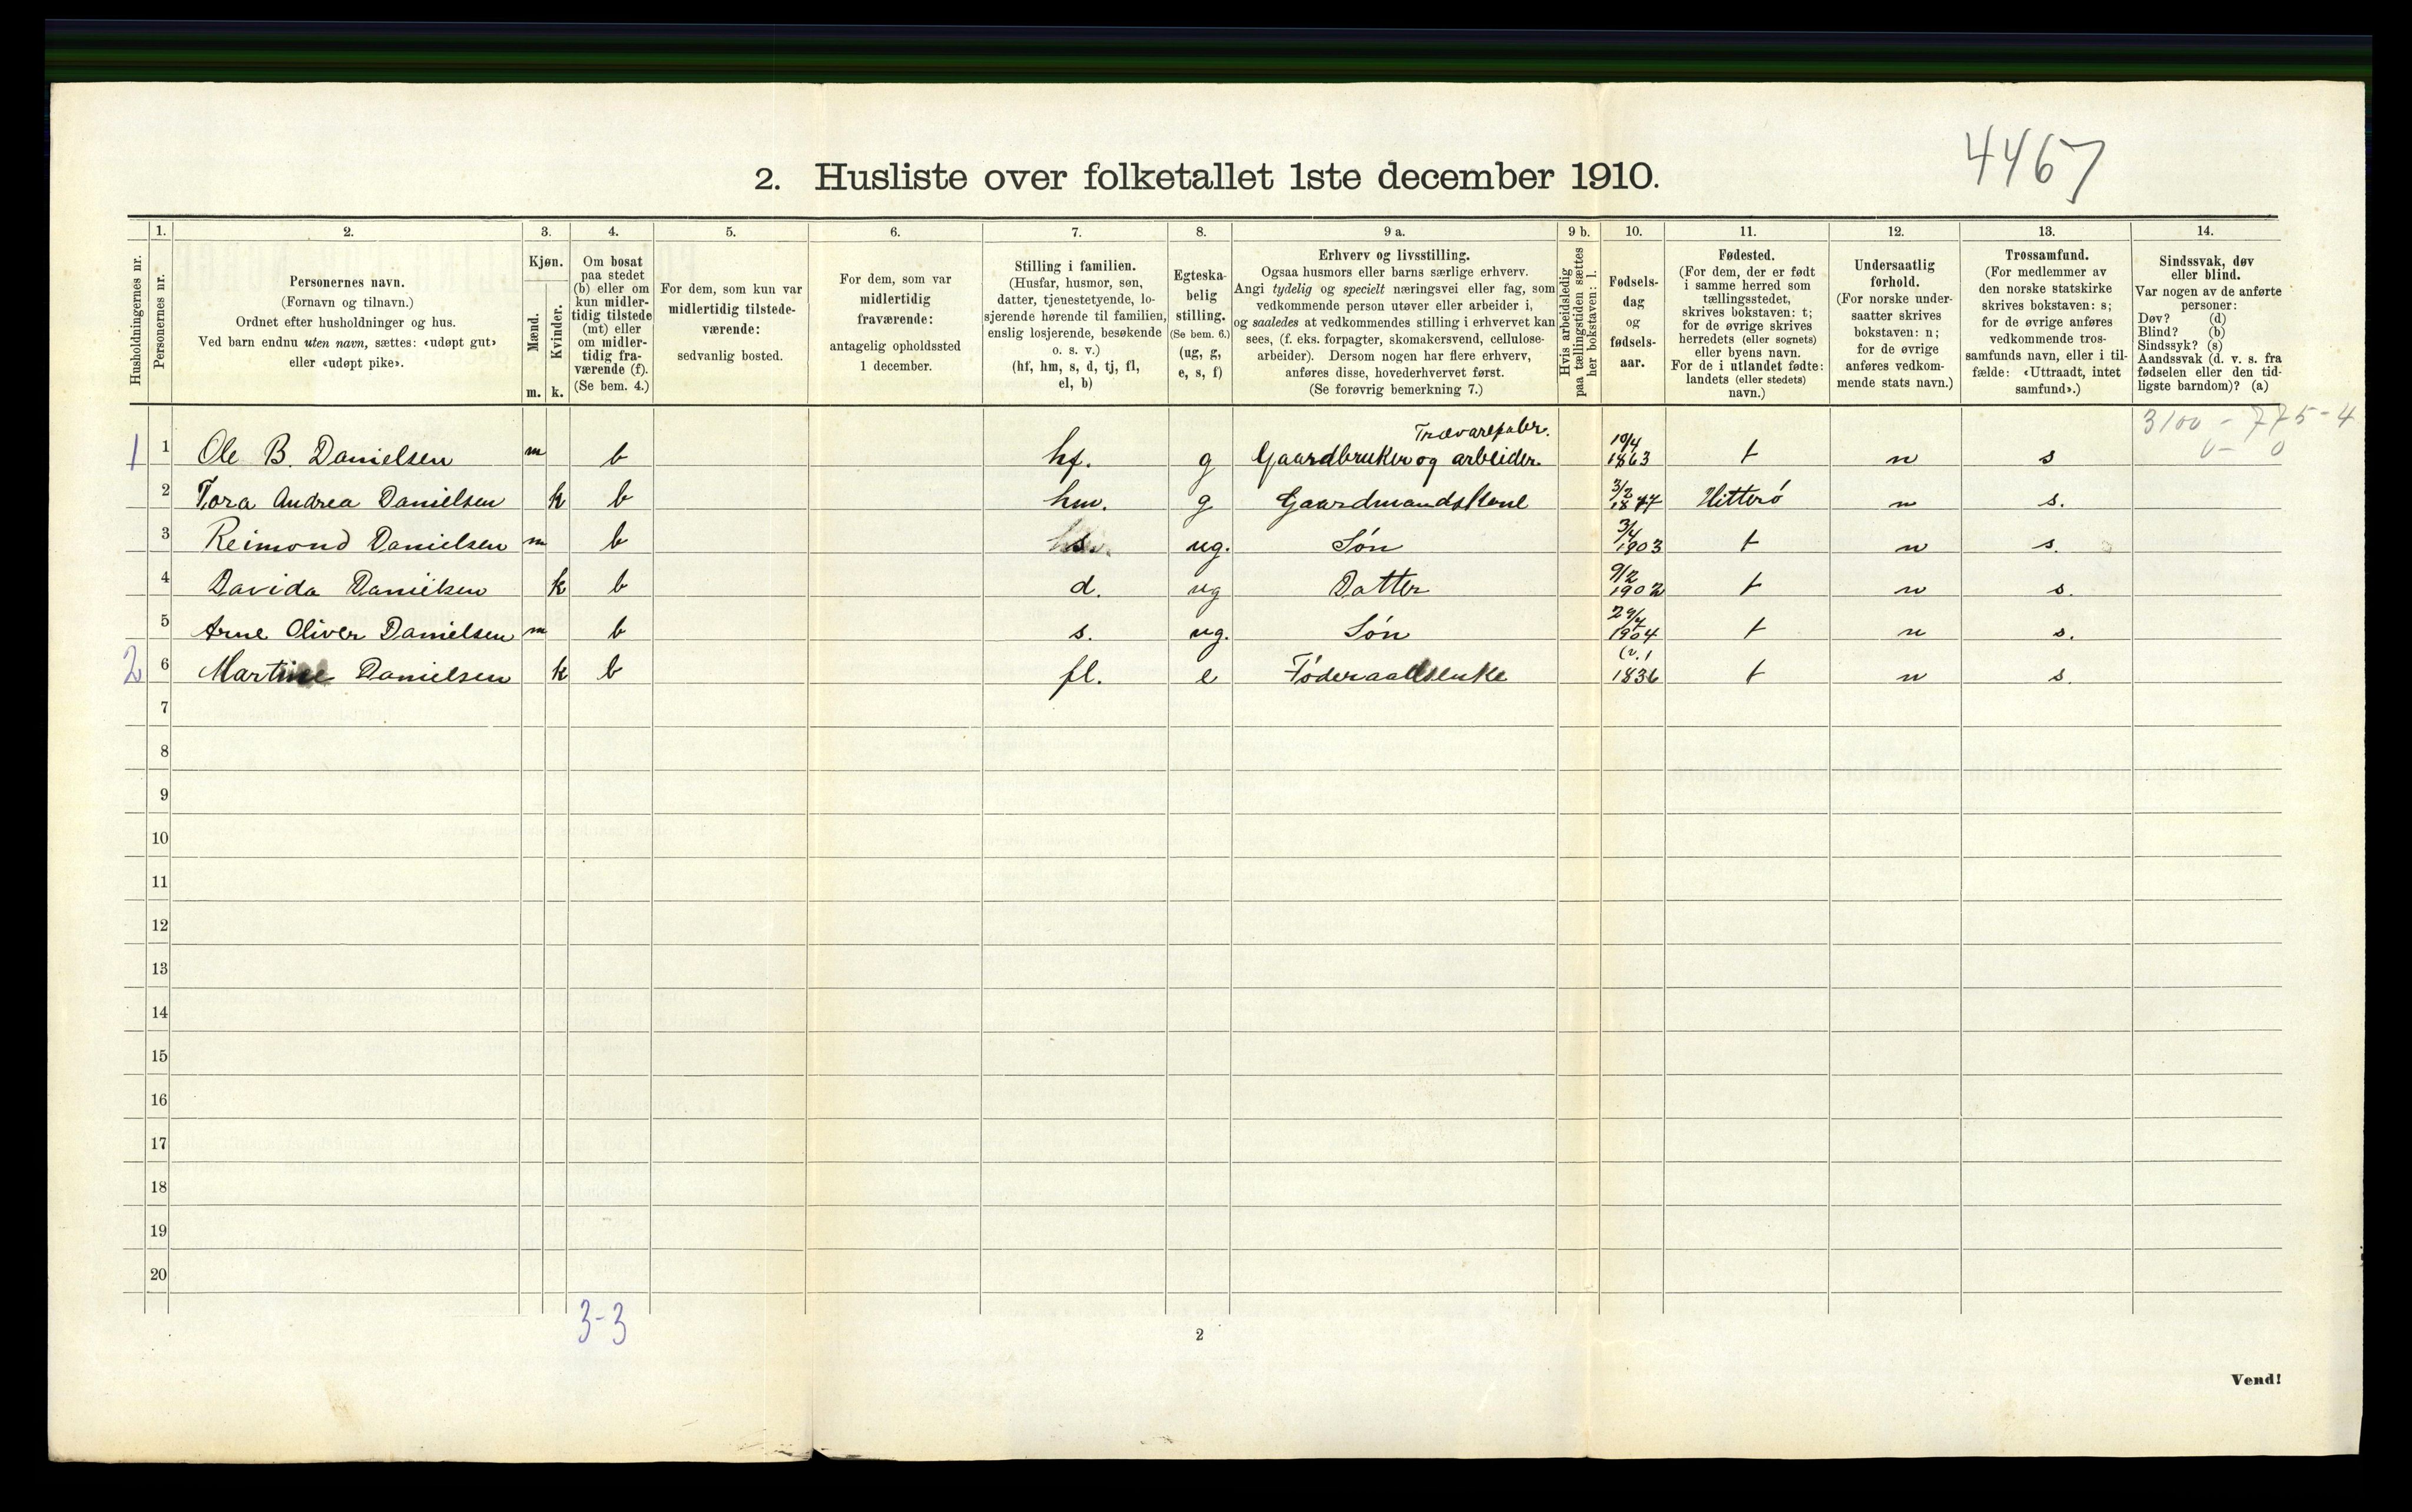 4467
2. Husliste over folketallet 1ste december 1910.
Husholdningernes nr.
1.
Personernes nr.
2.
Personernes navn.
(Fornavn og tilnavn.)
Ordnet efter husholdninger og hus.
Ved barn endnu uten navn, sættes: «udøpt gut»
eller «udøpt pike».
3.
Kjøn.
Mænd.
Kvinder.
m. k.
4.
Om bosat
paa stedet
(b) eller om
kun midler-
tidig tilstede
(mt) eller
om midler-
tidig fra-
værende (f).
(Se bem. 4.)
5.
For dem, som kun var
midlertidig tilstede-
værende:
sedvanlig bosted.
6.
For dem, som var
midlertidig
fraværende:
antagelig opholdssted
1 december.
7.
Stilling i familien.
(Husfar, husmor, søn,
datter, tjenestetyende, lo-
sjerende hørende til familien,
enslig losjerende, besøkende
o. s. v.)
(hf, hm, s, d, tj, fl,
el, b)
8.
Egteska-
belig
stilling.
(Se bem. 6.)
(ug, g,
e, s, f)
9 a.
Erhverv og livsstilling.
Ogsaa husmors eller barns særlige erhverv.
Angi tydelig og specielt næringsvei eller fag, som
vedkommende person utøver eller arbeider i,
og saaledes at vedkommendes stilling i erhvervet kan
sees, (f. eks. forpagter, skomakersvend, cellulose-
arbeider). Dersom nogen har flere erhverv,
anføres disse, hovederhvervet først.
(Se forøvrig bemerkning 7.)
9 b.
Hvis arbeidsledig
paa tællingstiden sættes
her bokstaven: l.
10.
Fødsels-
dag
og
fødsels-
aar.
11.
Fødested.
(For dem, der er født
i samme herred som
tællingsstedet,
skrives bokstaven: t;
for de øvrige skrives
herredets (eller sognets)
eller byens navn.
For de i utlandet fødte:
landets (eller stedets)
navn.)
12.
Undersaatlig
forhold.
(For norske under-
saatter skrives
bokstaven: n;
for de øvrige
anføres vedkom-
mende stats navn.)
13.
Trossamfund.
(For medlemmer av
den norske statskirke
skrives bokstaven: s;
for de øvrige anføres
vedkommende tros-
samfunds navn, eller i til-
fælde: «Uttraadt, intet
samfund».)
14.
Sindssvak, døv
eller blind.
Var nogen av de anførte
personer:
Døv? (d)
Blind? (b)
Sindssyk? (s)
Aandssvak (d. v. s. fra
fødselen eller den tid-
ligste barndom)? (a)
3100 - 775-4
0- 0
Trævarefabr.
1 1 Ole B. Danielsen m b hf. g Gaardbruker og arbeider. 10/4 1863 t n s
2 Tora Andrea Danielsen k b hm. g Gaardmandskone 3/2 1877 Hitterö n s.
3 Reimond Danielsen m b s. ug. Søn 3/4 1903 t n s.
4 Davida Danielsen k b d. ug Datter 9/2 1902 t n s.
5 Arne Oliver Danielsen m b s. ug. Søn 1904 t n s.
2 6 Martine Danielsen k b fl. e Föderaadsenke 1836 t n s.
7
8
9
10
11
12
13
14
15
16
17
18
19
20
3-3
2
Vend!